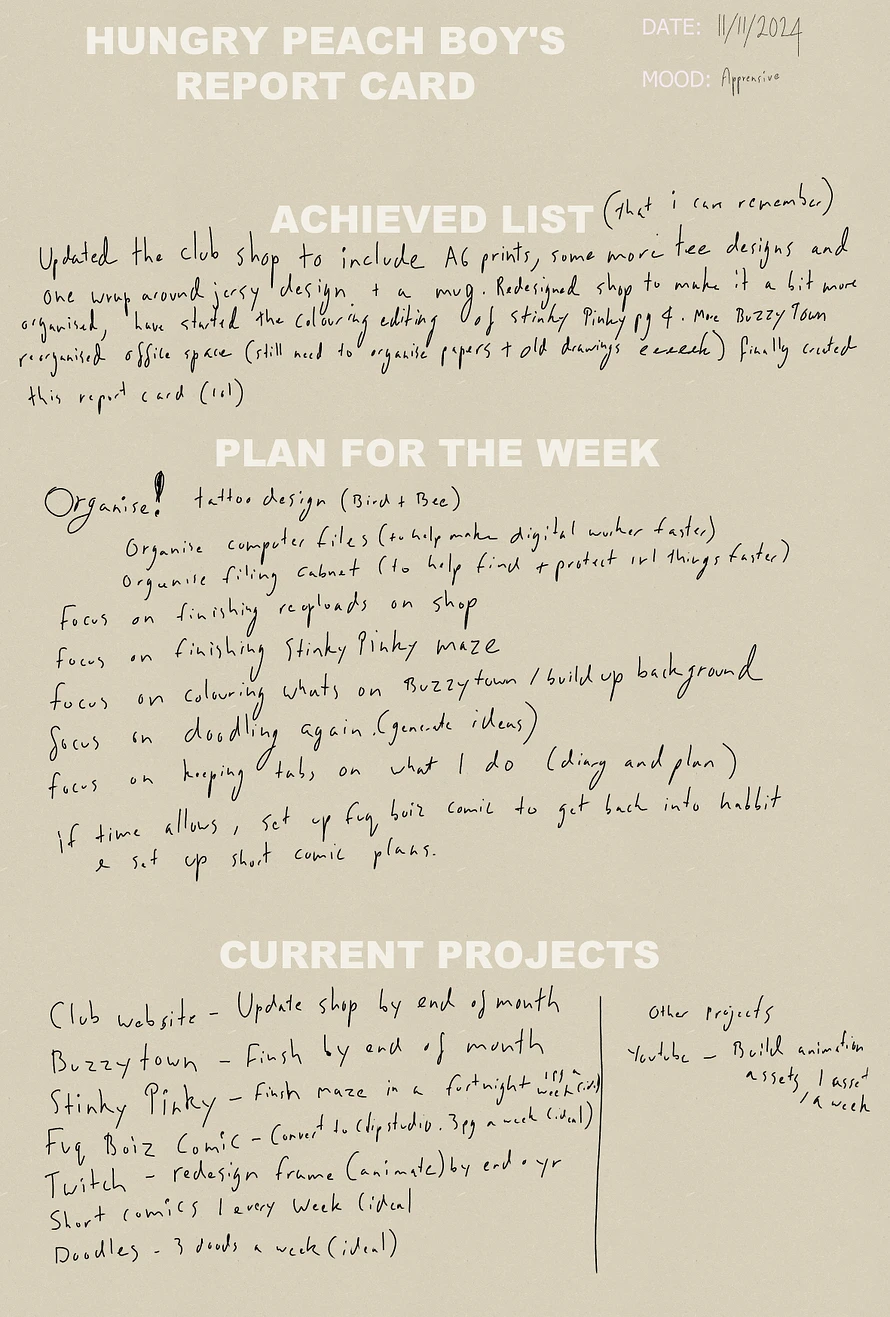 HUNGRY PEACH BOY'S
REPORT CARD
DATE: 11/11/2024
MOOD: Apprensive
ACHIEVED LIST (that i can remember)
Updated the club shop to include A6 prints, some more tee designs and
one wrap around jersy design + a mug. Redesigned shop to make it a bit more
organised, have started the colouring editing of stinky Pinky pg 4. More BuzzyTown
reorganised office space (still need to organise papers + old drawings eeeeek) finally created
this report card (lol)
PLAN FOR THE WEEK
Organise! tattoo design (Bird + Bee)
Organise computer files (to help make digital worker faster)
Organise filing cabnet (to help find + protect irl things faster)
Focus on finishing reuploads on shop
focus on finishing Stinky Pinky maze
focus on colouring whats on Buzzytown / build up background
focus on doodling again. (generate ideas)
focus on keeping tabs on what I do (diary and plan)
if time allows, set up Fuq boiz comic to get back into habbit
e set up short comic plans.
CURRENT PROJECTS
Club website - Update shop by end of month
Buzzytown - Finsh by end of month
Stinky Pinky - Finsh maze in a fortnight 1pg a week (ideal)
Fuq Boiz Comic - Convert to Clipstudio. 3pg a week (ideal)
Twitch - redesign frame (animate) by end o yr
Short comics 1 every Week (ideal
Doodles - 3 doods a week (ideal)
Other Projects
Youtube - Build animation
assets, 1 asset
/a week